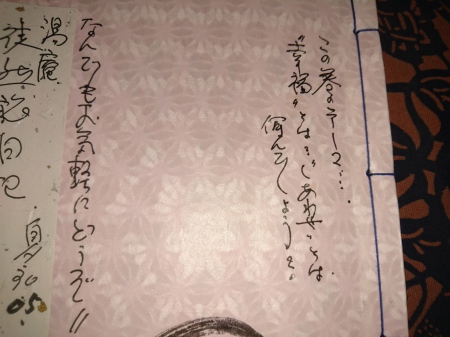 この巻のテーマ…
"幸福"とは…"しあわせ"とは
何んでしょうね。
なんでもお気軽にどうぞ!!
湯庵
徒然絵日記
夏 05.